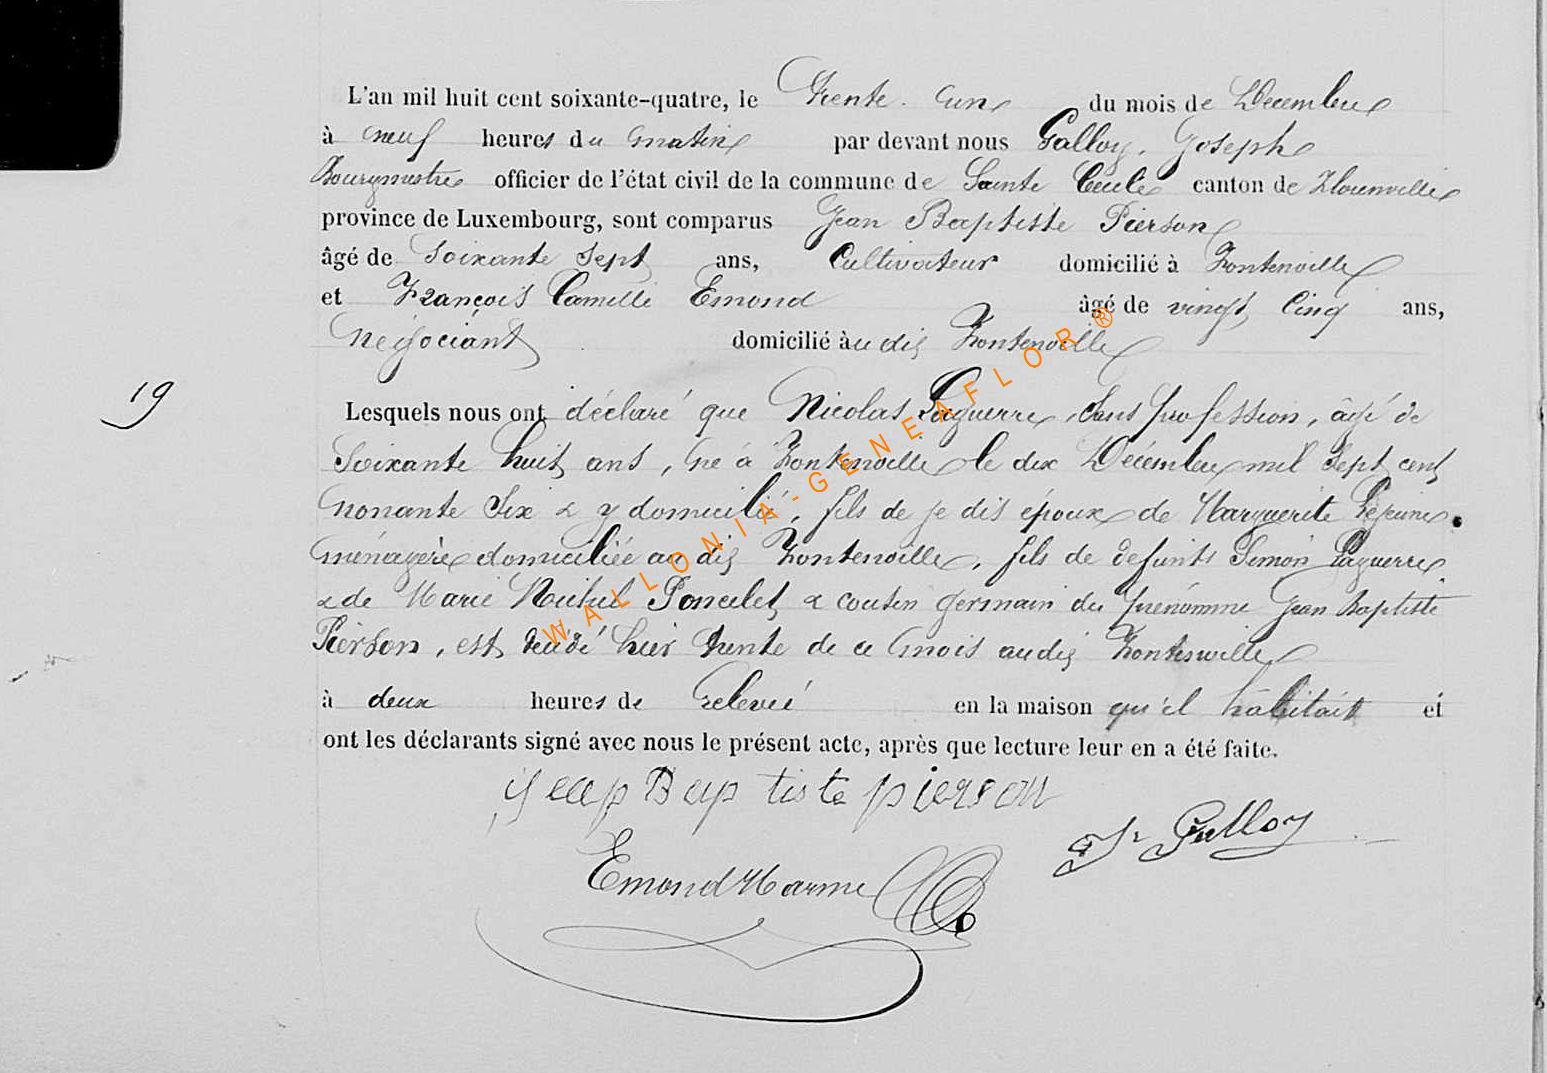 L'an mil huit cent soixante-quatre, le Trente-Une du mois de Décembre
à neuf heures du matin par devant nous Galloy, Joseph
Bourgmestre officier de l'état civil de la commune de Sainte Cécile canton de Florenville
province de Luxembourg, sont comparus Jean Baptiste Pierson
âgé de Soixante Sept ans, Cultivateur domicilié à Fontenoille
et François Camille Emond âgé de vingt Cinq ans,
Négociant domicilié àudit Fontenoille
19
Lesquels nous ont déclaré que Nicolas Laguerre, Sans profession, âgé de
Soixante huit ans, né à Fontenoille le dix Décembre mil Sept cent
Nonante Six & y domicilié, fils de je dis époux de Marguerite Lejeune
ménagère domiciliée au dit Fontenoille, fils de défunts Simon Laguerre
& de Marie Michel Poncelet & cousin germain du prénommé Jean Baptiste
Pierson, est décédé hier trente de ce mois audit Fontenoille
à deux heures de relevée en la maison qu'il habitait et
ont les déclarants signé avec nous le présent acte, après que lecture leur en a été faite.
jeap Bap tiste pierson
Jh Galloy
Emond Marme
WALLONIA-GENEAFLOR®